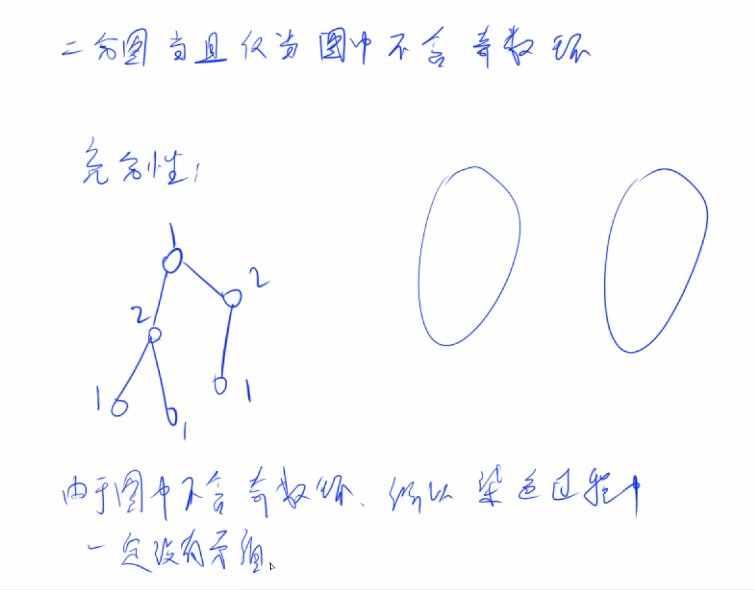 二分图当且仅当图中不含奇数环
充分性：
1
2
2
1
1
1
由于图中不含奇数环、所以染色过程中
一定没有矛盾。